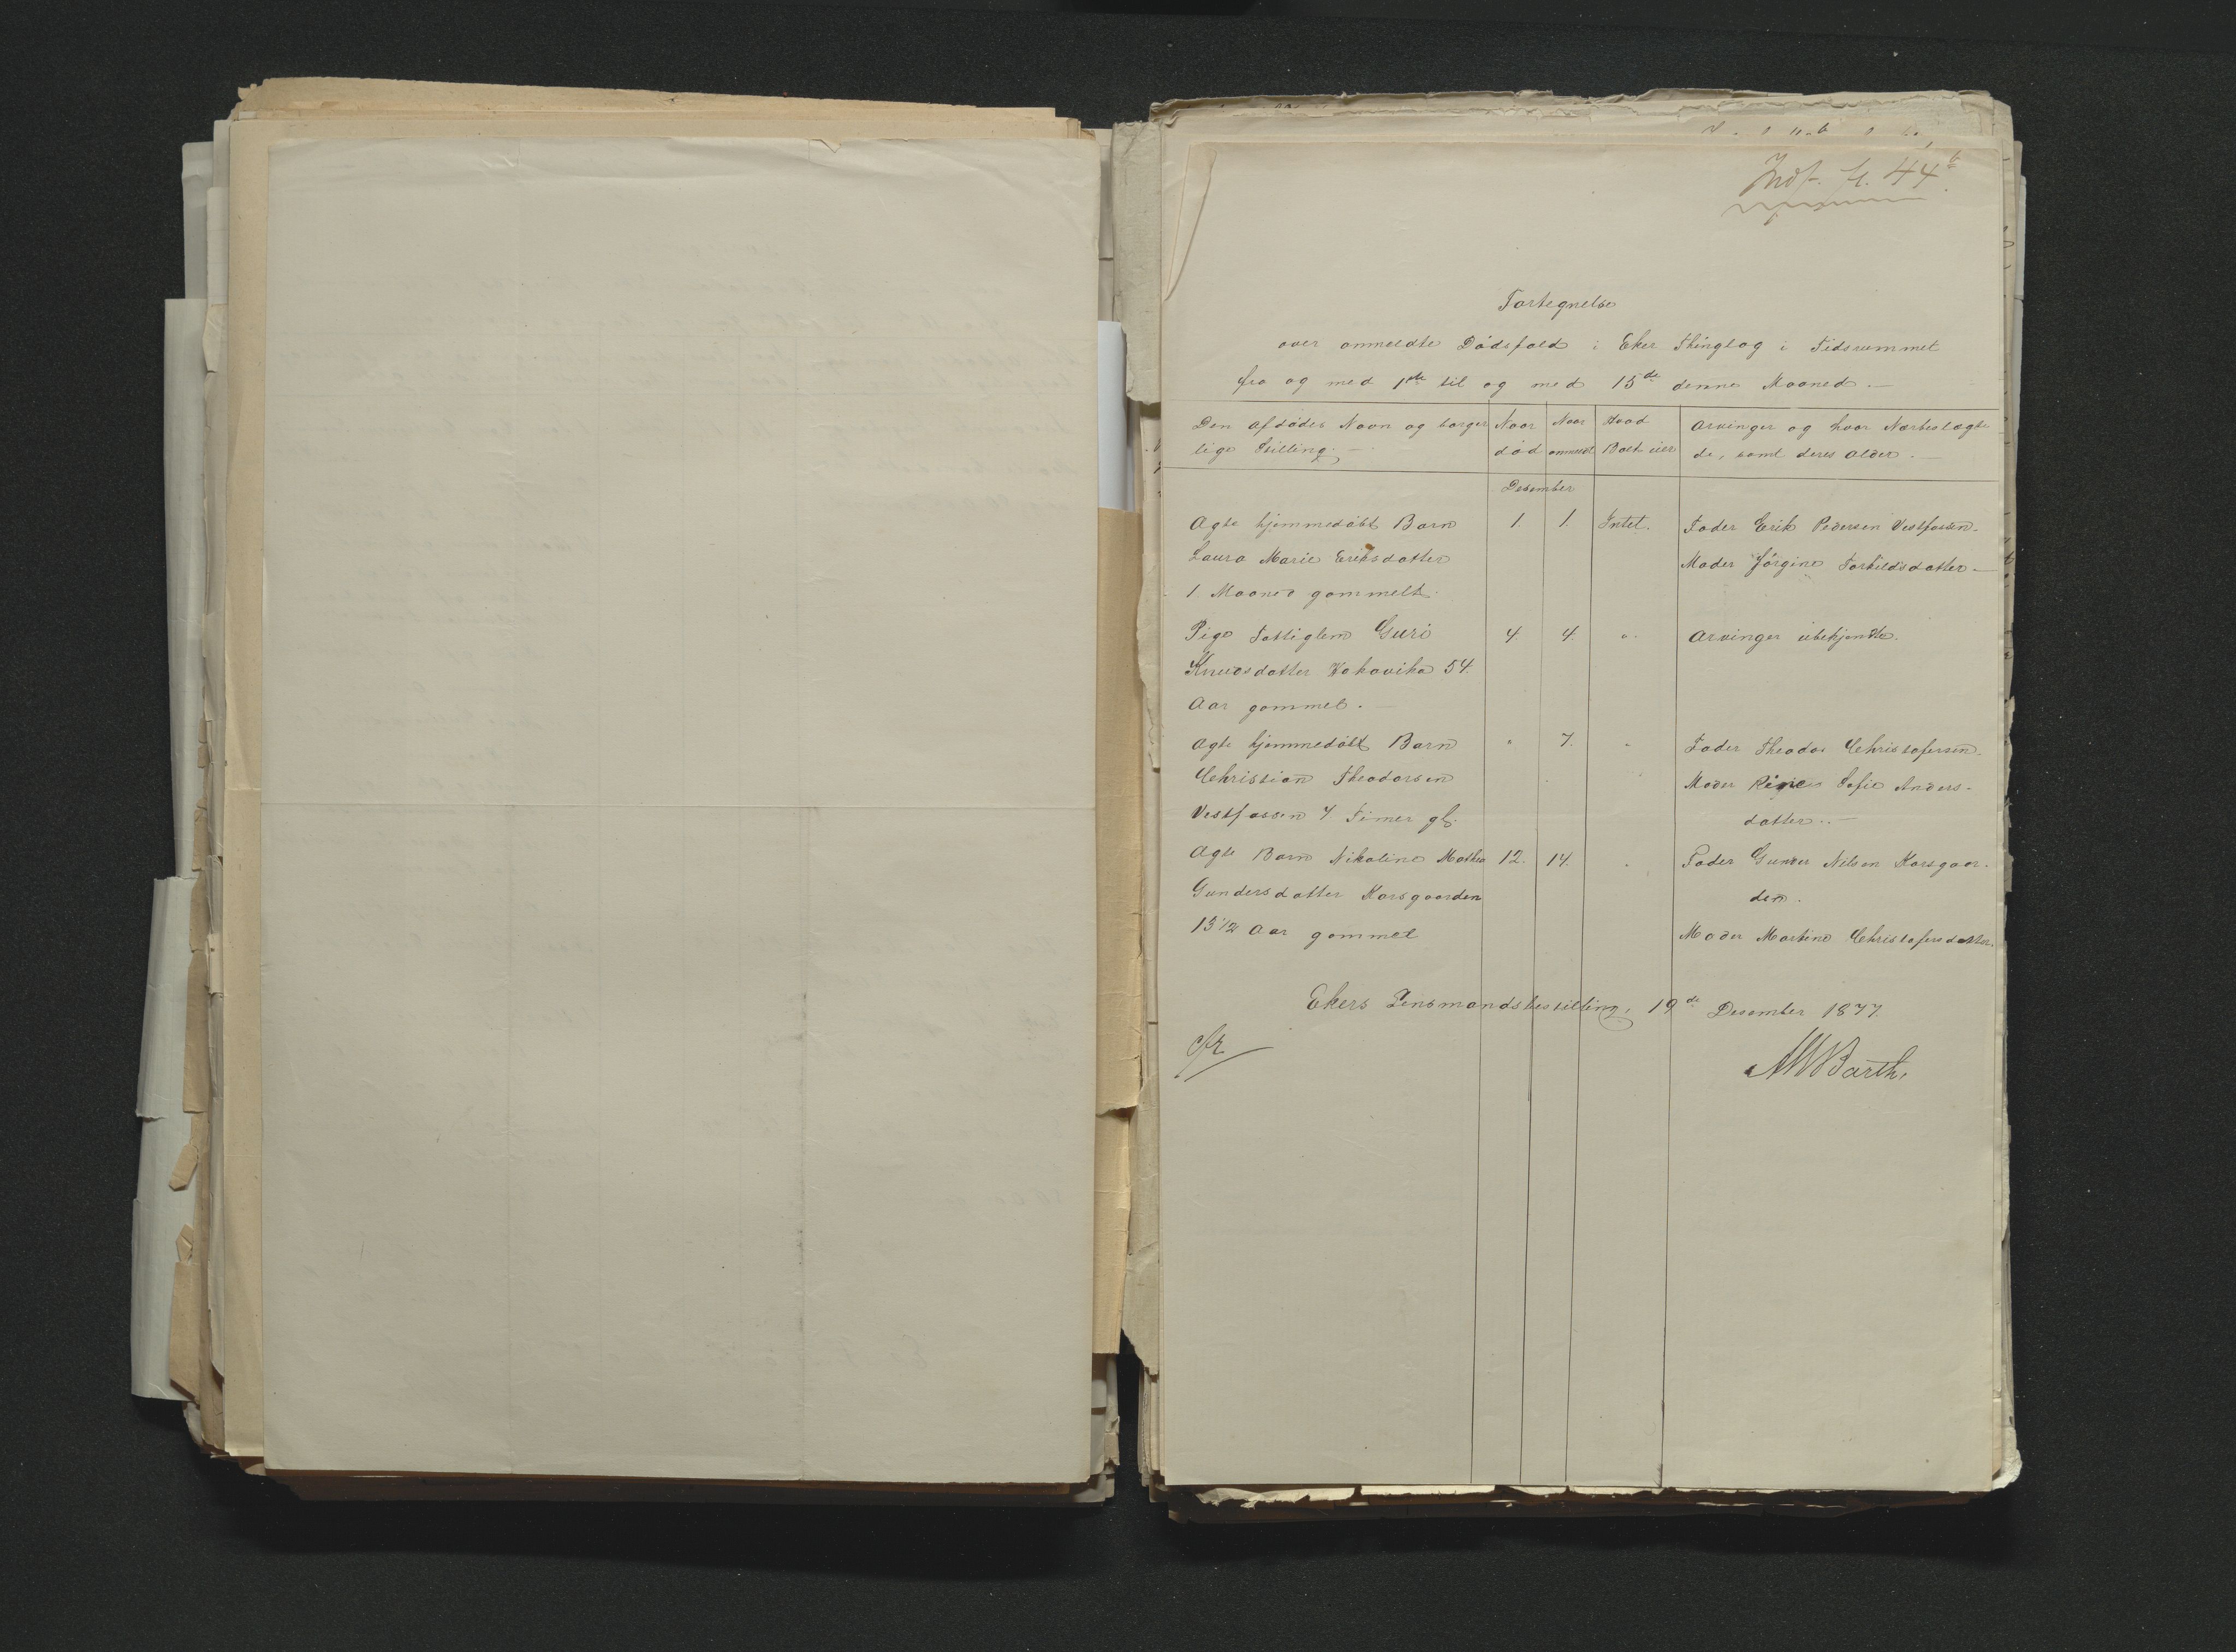 Indf. fl. 44b
Fortegnelse
over anmeldte Dødsfald i Eker Thinglag i Tidsrummet
fra og med 1ste til og med 15de denne Maaned. —
Den afdødes Navn og borger
lige Stilling. —
Naar
død
Naar
anmeldt
Hvad
Boet eier
Arvinger og hvor Nærbeslægte
de, samt deres Alder. —
Desember
Ægte hjemmedøbt Barn 1. 1. Intet. Fader Erik Pedersen Vestfossen.
Laura Marie Eriksdatter Moder Jørgine Torkildsdatter. —
1 Maaned gammelt.
Pige Fattiglem Guri 4. 4. " Arvinger ubekjendte.
Knudsdatter Hakavika 54
Aar gammel. —
Ægte hjemmedøbt Barn " 7. " Fader Theodor Christofersen.
Christian Theodorsen Moder Sofie Anders-
Vestfossen 4 Timer gl. datter. —
Ægte Barn Nikoline Mathea 12. 14. " Fader Gunder Nilsen Korsgaar-
Gundersdatter Korsgaarden den.
13 1/2 Aar gammel Moder Martine Christofersdatter.
Ekers Lensmandsbestilling, 19de Desember 1877.
MWBarth.